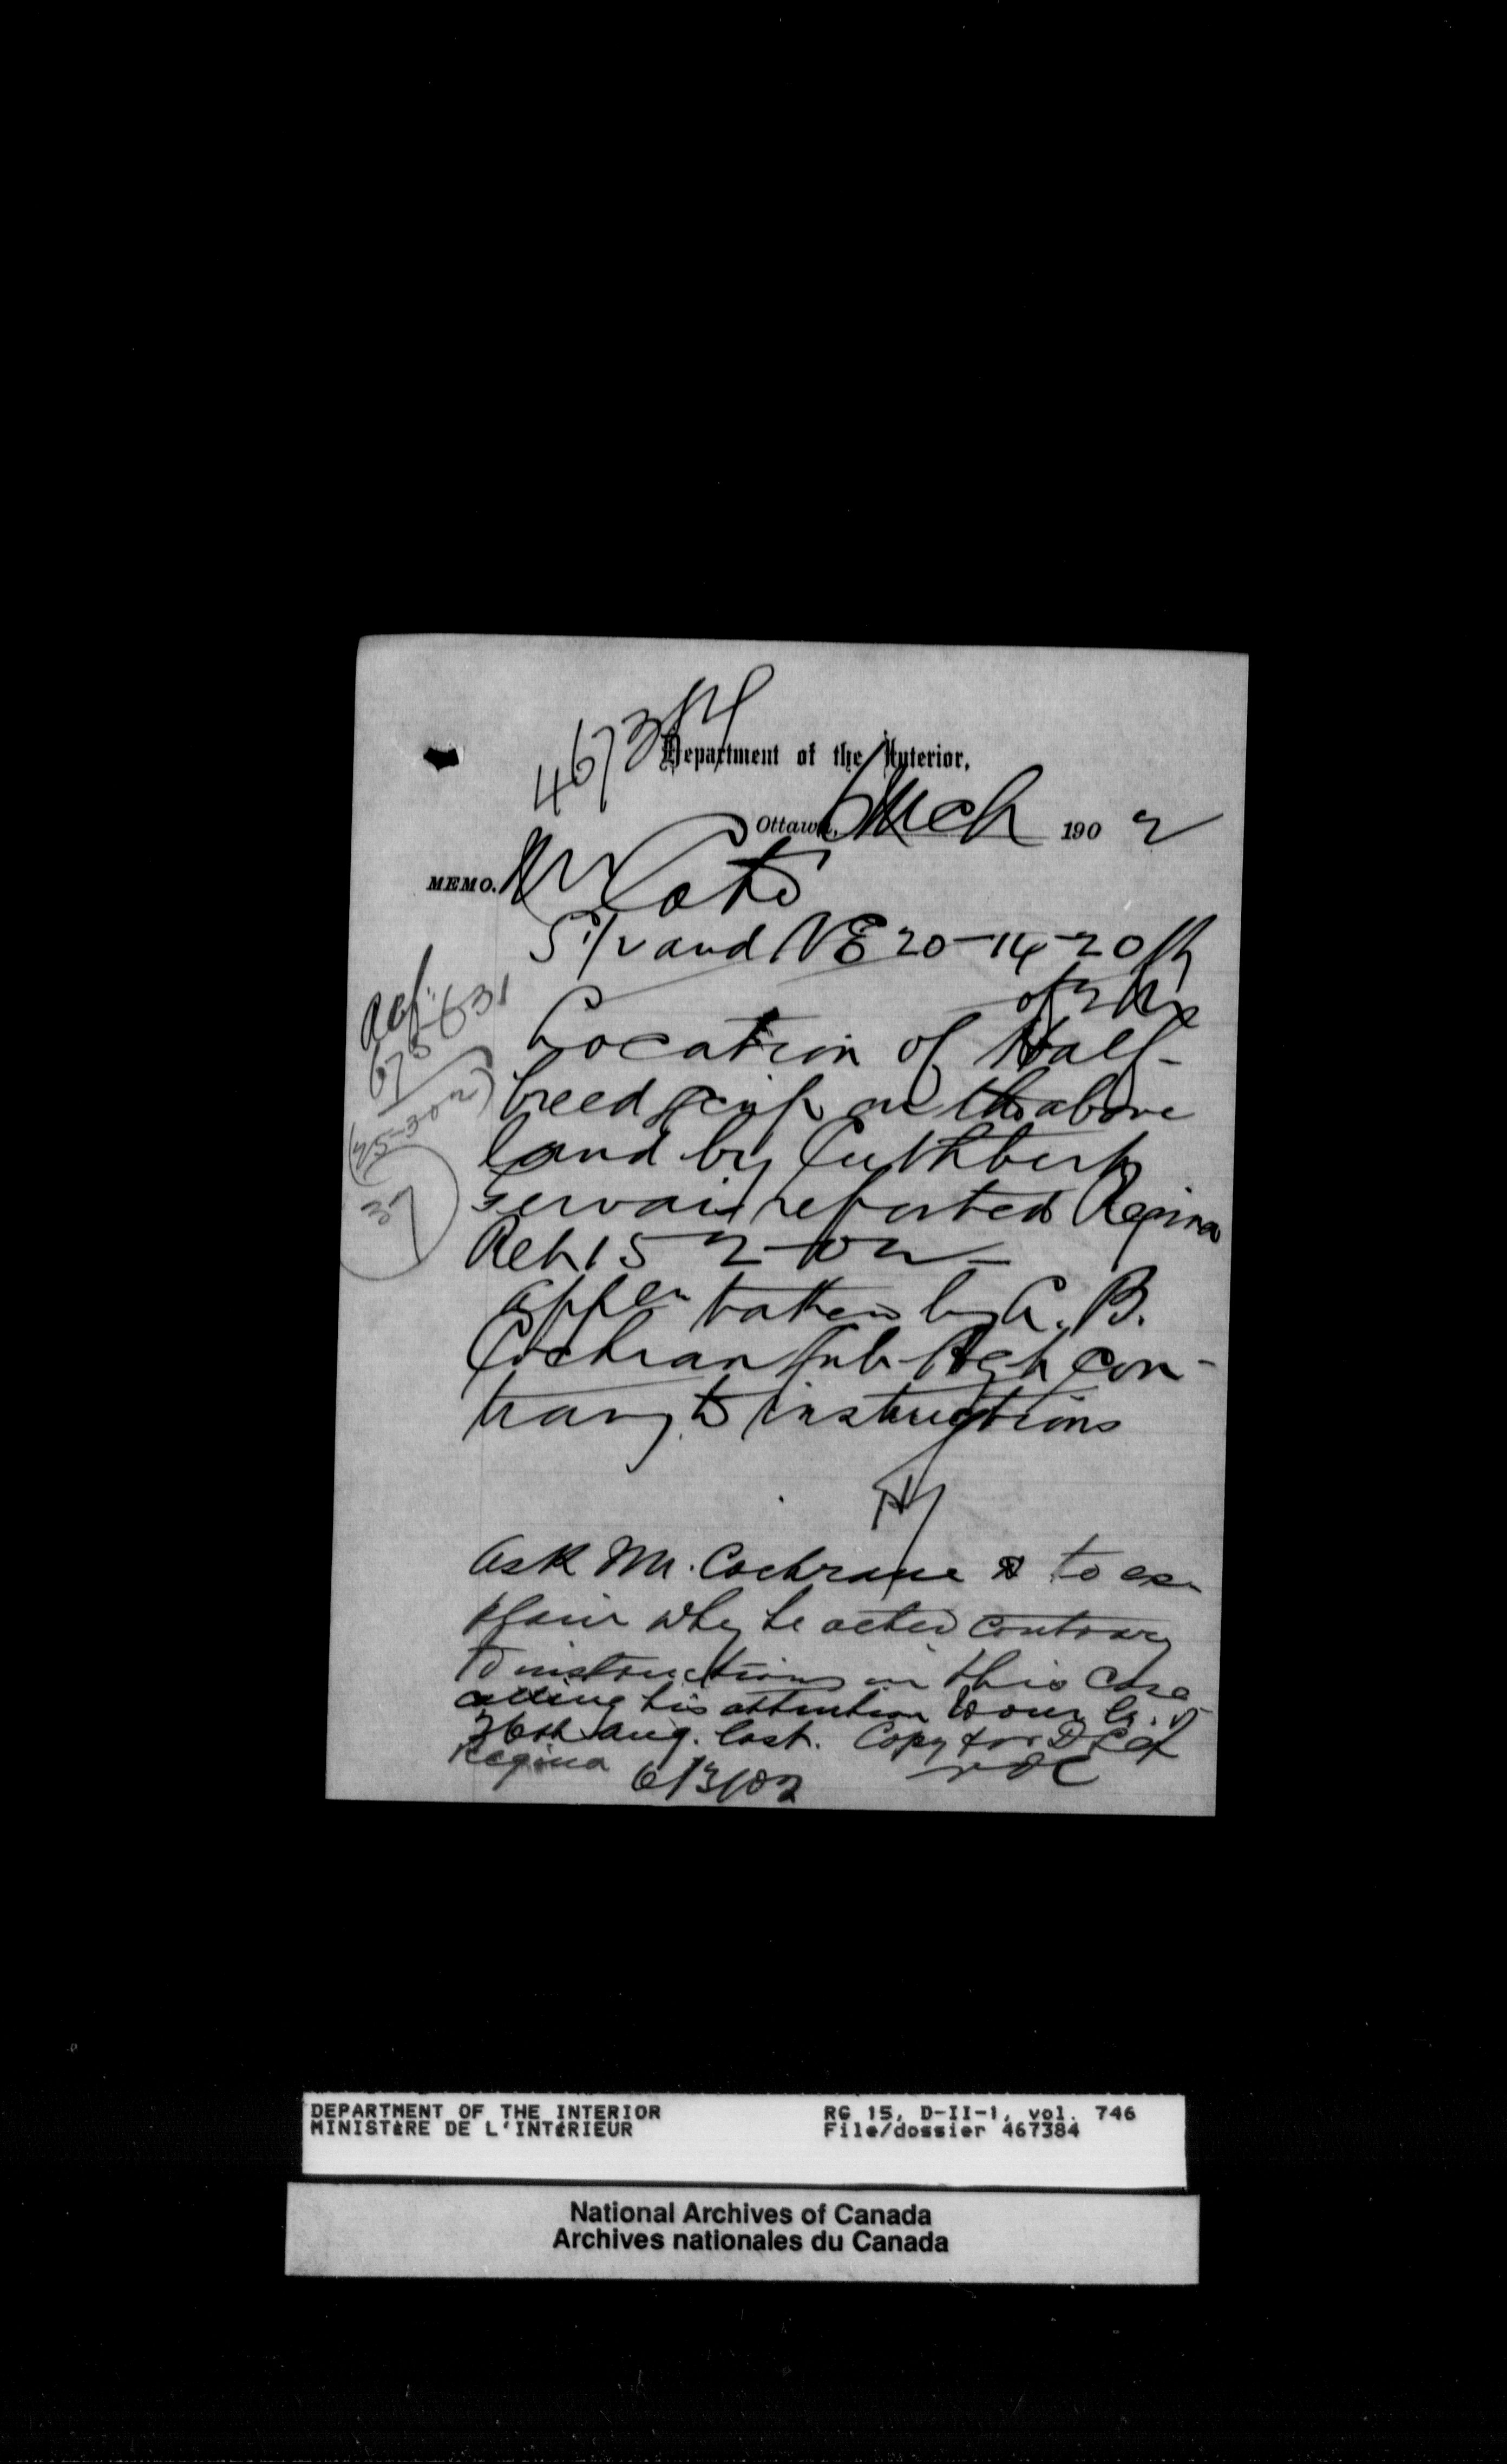 467384
Department of the Interior,
Ottawa, 6 Mch 1902
MEMO. Mr Coté
S 1/2 and NE 20-14-20
of 2 Mer
Location of Half-
breed scrip on the above
land by Cuthbert
Gervais reported Regina
Ret 15-2-02
appln taken by A. B.
Cochran Sub-Agt con-
trary to instructions
Ask Mr. Cochrane to ex-
plain why he acted contrary
to instructions in this case
calling his attention to our
26th Aug. last. Copy for
Regina
6/3/02
Ref:
675631
37
DEPARTMENT OF THE INTERIOR
MINISTÈRE DE L'INTÉRIEUR
RG 15, D-II-1, vol. 746
File/dossier 467384
National Archives of Canada
Archives nationales du Canada